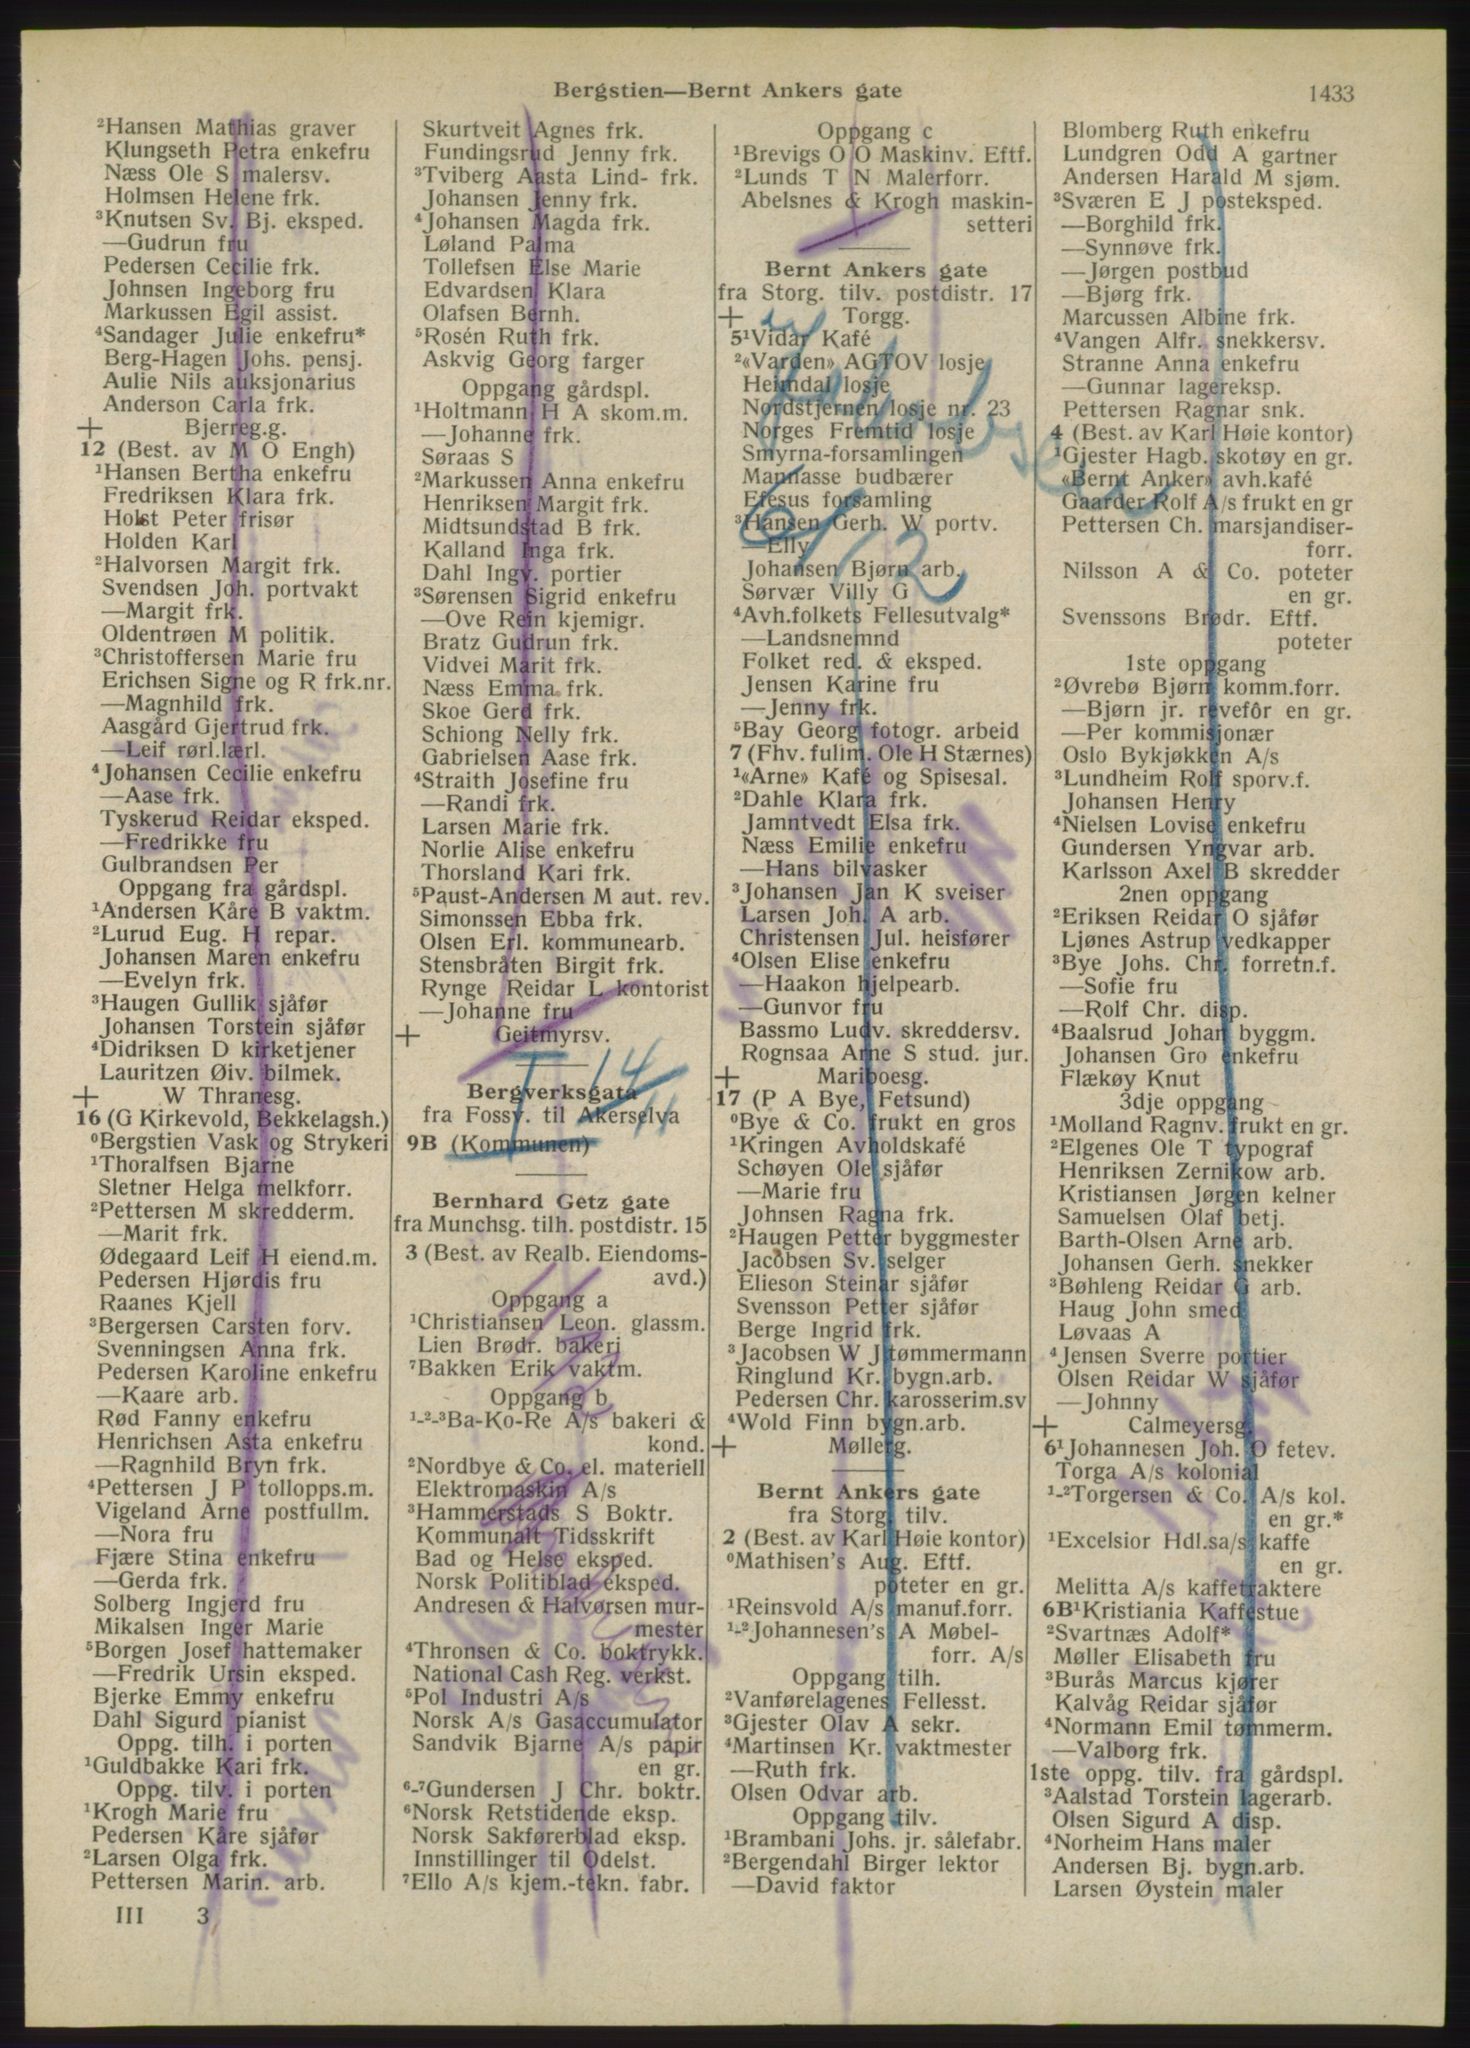 Bergstien—Bernt Ankers gate
1433
²Hansen Mathias graver
Klungseth Petra enkefru
Næss Ole S malersv.
Holmsen Helene frk.
³Knutsen Sv. Bj. eksped.
—Gudrun fru
Pedersen Cecilie frk.
Johnsen Ingeborg fru
Markussen Egil assist.
⁴Sandager Julie enkefru*
Berg-Hagen Johs. pensj.
Aulie Nils auksjonarius
Anderson Carla frk.
+ Bjerreg.g.
12 (Best. av M O Engh)
¹Hansen Bertha enkefru
Fredriksen Klara frk.
Holst Peter frisør
Holden Karl
²Halvorsen Margit frk.
Svendsen Joh. portvakt
—Margit frk.
Oldentrøen M politik.
³Christoffersen Marie fru
Erichsen Signe og R frk.nr.
—Magnhild frk.
Aasgård Gjertrud frk.
—Leif rørl.lærl.
⁴Johansen Cecilie enkefru
—Aase frk.
Tyskerud Reidar eksped.
—Fredrikke fru
Gulbrandsen Per
Oppgang fra gårdspl.
¹Andersen Kåre B vaktm.
²Lurud Eug. H repar.
Johansen Maren enkefru
—Evelyn frk.
³Haugen Gullik sjåfør
Johansen Torstein sjåfør
⁴Didriksen D kirketjener
Lauritzen Øiv. bilmek.
+ W Thranesg.
16 (G Kirkevold, Bekkelagsh.)
⁰Bergstien Vask og Strykeri
¹Thoralfsen Bjarne
Sletner Helga melkforr.
²Pettersen M skredderm.
—Marit frk.
Ødegaard Leif H eiend.m.
Pedersen Hjørdis fru
Raanes Kjell
³Bergersen Carsten forv.
Svenningsen Anna frk.
Pedersen Karoline enkefru
—Kaare arb.
Rød Fanny enkefru
Henrichsen Asta enkefru
—Ragnhild Bryn frk.
⁴Pettersen J P tollopps.m.
Vigeland Arne postfullm.
—Nora fru
Fjære Stina enkefru
—Gerda frk.
Solberg Ingjerd fru
Mikalsen Inger Marie
⁵Borgen Josef hattemaker
—Fredrik Ursin eksped.
Bjerke Emmy enkefru
Dahl Sigurd pianist
Oppg. tilh. i porten
¹Guldbakke Kari frk.
Oppg. tilv. i porten
¹Krogh Marie fru
Pedersen Kåre sjåfør
²Larsen Olga frk.
Pettersen Marin. arb.
III 3
Skurtveit Agnes frk.
Fundingsrud Jenny frk.
³Tviberg Aasta Lind- frk.
Johansen Jenny frk.
⁴Johansen Magda frk.
Løland Palma
Tollefsen Else Marie
Edvardsen Klara
Olafsen Bernh.
⁵Rosén Ruth frk.
Askvig Georg farger
Oppgang gårdspl.
¹Holtmann H A skom.m.
—Johanne frk.
Søraas S
²Markussen Anna enkefru
Henriksen Margit frk.
Midtsundstad B frk.
Kalland Inga frk.
Dahl Ingv. portier
³Sørensen Sigrid enkefru
—Ove Rein kjemigr.
Bratz Gudrun frk.
Vidvei Marit frk.
Næss Emma frk.
Skoe Gerd frk.
Schiong Nelly frk.
Gabrielsen Aase frk.
⁴Straith Josefine fru
—Randi frk.
Larsen Marie frk.
Norlie Alise enkefru
Thorsland Kari frk.
⁵Paust-Andersen M aut. rev.
Simonssen Ebba frk.
Olsen Erl. kommunearb.
Stensbråten Birgit frk.
Rynge Reidar L kontorist
—Johanne fru
+ Geitmyrsv.
Bergverksgata
fra Fossv. til Akerselva
9B (Kommunen)
Bernhard Getz gate
fra Munchsg. tilh. postdistr. 15
3 (Best. av Realb. Eiendoms-
avd.)
Oppgang a
¹Christiansen Leon. glassm.
Lien Brødr. bakeri
⁷Bakken Erik vaktm.
Oppgang b
¹-²-³Ba-Ko-Re A/s bakeri &
kond.
²Nordbye & Co. el. materiell
Elektromaskin A/s
³Hammerstads S Boktr.
Kommunalt Tidsskrift
Bad og Helse eksped.
Norsk Politiblad eksped.
Andresen & Halvorsen mur-
mester
⁴Thronsen & Co. boktrykk.
National Cash Reg. verkst.
⁵Pol Industri A/s
Norsk A/s Gasaccumulator
Sandvik Bjarne A/s papir
en gr.
⁶-⁷Gundersen J Chr. boktr.
⁶Norsk Retstidende eksp.
Norsk Sakførerblad eksp.
Innstillinger til Odelst.
⁷Ello A/s kjem.-tekn. fabr.
Oppgang c
¹Brevigs O O Maskinv. Eftf.
²Lunds T N Malerforr.
Abelsnes & Krogh maskin-
setteri
Bernt Ankers gate
fra Storg. tilv. postdistr. 17
+ Torgg.
5¹Vidar Kafé
²«Varden» AGTOV losje
Heimdal losje
Nordstjernen losje nr. 23
Norges Fremtid losje
Smyrna-forsamlingen
Mannasse budbærer
Efesus forsamling
³Hansen Gerh. W portv.
—Elly
Johansen Bjørn arb.
Sørvær Villy G
⁴Avh.folkets Fellesutvalg*
—Landsnemnd
Folket red. & eksped.
Jensen Karine fru
—Jenny frk.
⁵Bay Georg fotogr. arbeid
7 (Fhv. fullm. Ole H Stærnes)
¹«Arne» Kafé og Spisesal.
²Dahle Klara frk.
Jamntvedt Elsa frk.
Næss Emilie enkefru
—Hans bilvasker
³Johansen Jan K sveiser
Larsen Joh. A arb.
Christensen Jul. heisfører
⁴Olsen Elise enkefru
—Haakon hjelpearb.
—Gunvor fru
Bassmo Ludv. skreddersv.
Rognsaa Arne S stud. jur.
+ Mariboesg.
17 (P A Bye, Fetsund)
⁰Bye & Co. frukt en gros
¹Kringen Avholdskafé
Schøyen Ole sjåfør
—Marie fru
Johnsen Ragna frk.
²Haugen Petter byggmester
Jacobsen Sv. selger
Elieson Steinar sjåfør
Svensson Petter sjåfør
Berge Ingrid frk.
³Jacobsen W J tømmermann
Ringlund Kr. bygn.arb.
Pedersen Chr. karosserim.sv
⁴Wold Finn bygn.arb.
+ Møllerg.
Bernt Ankers gate
fra Storg. tilv.
2 (Best. av Karl Høie kontor)
⁰Mathisen's Aug. Eftf.
poteter en gr.
¹Reinsvold A/s manuf.forr.
¹-²Johannesen's A Møbel-
forr. A/s
Oppgang tilh.
²Vanførelagenes Fellesst.
³Gjester Olav A sekr.
⁴Martinsen Kr. vaktmester
—Ruth frk.
Olsen Odvar arb.
Oppgang tilv.
¹Brambani Johs. jr. sålefabr.
²Bergendahl Birger lektor
—David faktor
Blomberg Ruth enkefru
Lundgren Odd A gartner
Andersen Harald M sjøm.
³Sværen E J posteksped.
—Borghild frk.
—Synnøve frk.
—Jørgen postbud
—Bjørg frk.
Marcussen Albine frk.
⁴Vangen Alfr. snekkersv.
Stranne Anna enkefru
—Gunnar lagereksp.
Pettersen Ragnar snk.
4 (Best. av Karl Høie kontor)
¹Gjester Hagb. skotøy en gr.
«Bernt Anker» avh.kafé
Gaarder Rolf A/s frukt en gr
Pettersen Ch. marsjandiser-
forr.
Nilsson A & Co. poteter
en gr.
Svenssons Brødr. Eftf.
poteter
1ste oppgang
²Øvrebø Bjørn komm.forr.
—Bjørn jr. revefôr en gr.
—Per kommisjonær
Oslo Bykjøkken A/s
³Lundheim Rolf sporv.f.
Johansen Henry
⁴Nielsen Lovise enkefru
Gundersen Yngvar arb.
Karlsson Axel B skredder
2nen oppgang
²Eriksen Reidar O sjåfør
Ljønes Astrup vedkapper
³Bye Johs. Chr. forretn.f.
—Sofie fru
—Rolf Chr. disp.
⁴Baalsrud Johan byggm.
Johansen Gro enkefru
Flækøy Knut
3dje oppgang
¹Molland Ragnv. frukt en gr.
²Elgenes Ole T typograf
Henriksen Zernikow arb.
Kristiansen Jørgen kelner
Samuelsen Olaf betj.
Barth-Olsen Arne arb.
Johansen Gerh. snekker
³Bøhleng Reidar G arb.
Haug John smed
Løvaas A
⁴Jensen Sverre portier
Olsen Reidar W sjåfør
—Johnny
+ Calmeyersg.
6¹Johannesen Joh. O fetev.
Torga A/s kolonial
¹-²Torgersen & Co. A/s kol.
en gr.*
¹Excelsior Hdl.sa/s kaffe
en gr.
Melitta A/s kaffetraktere
6B¹Kristiania Kaffestue
²Svartnæs Adolf*
Møller Elisabeth fru
³Burås Marcus kjører
Kalvåg Reidar sjåfør
⁴Normann Emil tømmerm.
—Valborg frk.
1ste oppg. tilv. fra gårdspl.
³Aalstad Torstein lagerarb.
Olsen Sigurd A disp.
⁴Norheim Hans maler
Andersen Bj. bygn.arb.
Larsen Øystein maler